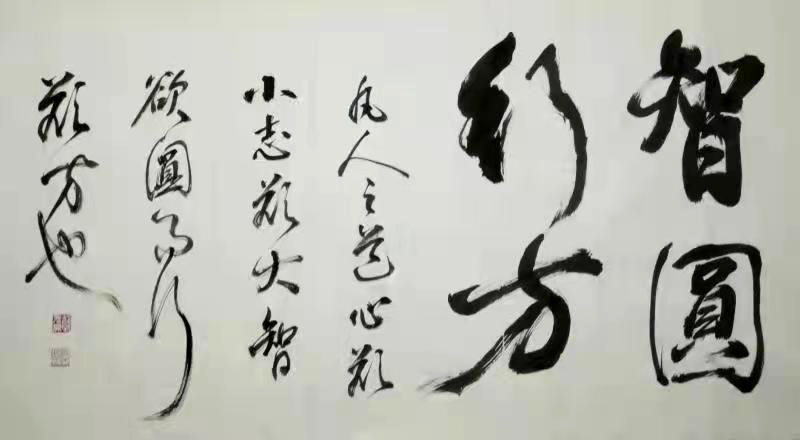 智圓
行方
凡人之道心欲
小志欲大智
欲圓而行
欲方也